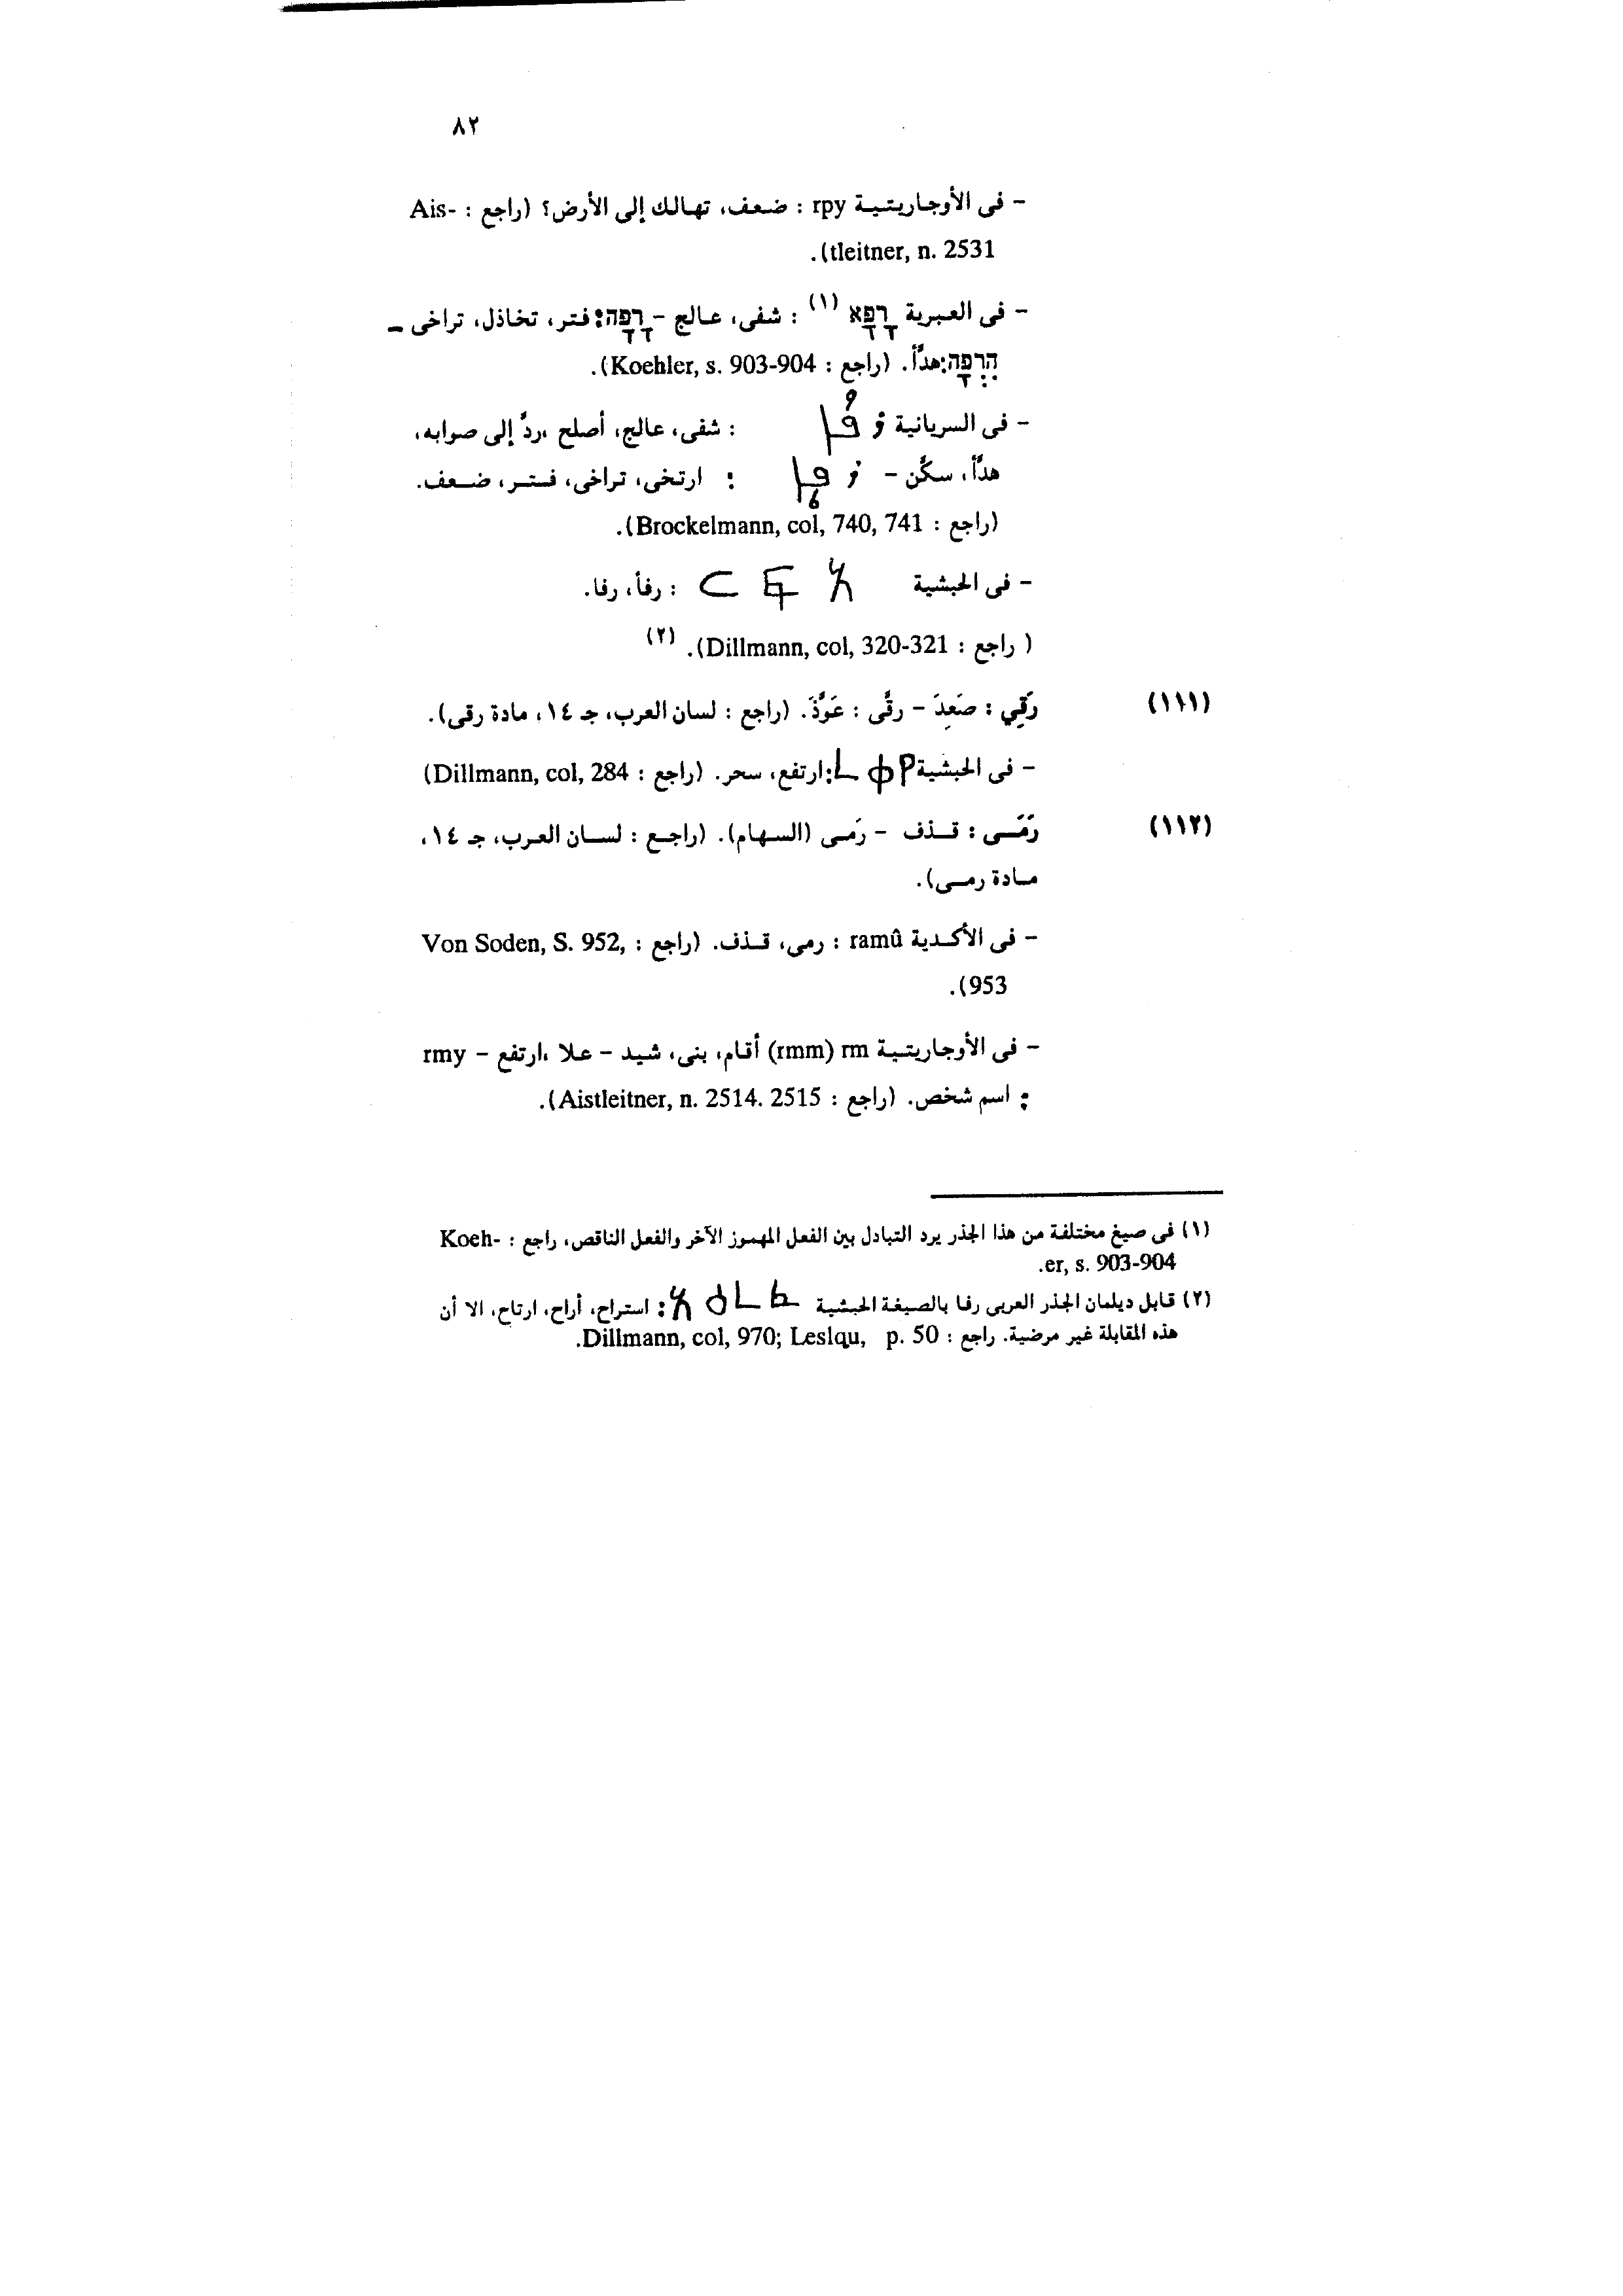 ٨٢
- فى الأوجاريتية rpy : ضعف، تهالك إلى الأرض؟ (راجع : Ais-
tleitner, n. 2531).
- فى العبرية רָפָא (١) : شفى، عالج - רָפָה: فتر، تخاذل، تراخى -
הִרְפָּה: هدَّأ. (راجع : Koehler, s. 903-904).
- فى السريانية : شفى، عالج، أصلح ،ردَّ إلى صوابه،
هدَّأ، سكَّن - : ارتخى، تراخى، فتر، ضعف.
(راجع : Brockelmann, col, 740, 741).
- فى الحبشية : رفأ، رفا.
( راجع : Dillmann, col, 320-321). (٢)
(١١١) رَقِي : صَعِدَ - رقَّى : عَوَّذَ. (راجع : لسان العرب، جـ ١٤، مادة رقى).
- فى الحبشية : ارتفع، سحر. (راجع : Dillmann, col, 284)
(١١٢) رَمَى : قذف - رَمى (السهام). (راجع : لسان العرب، جـ ١٤،
مادة رمى).
- فى الأكدية ramû : رمى، قذف. (راجع : Von Soden, S. 952,
953).
- فى الأوجاريتية rm (rmm) أقام، بنى، شيد - علا ،ارتفع - rmy
: اسم شخص. (راجع : Aistleitner, n. 2514. 2515).
(١) فى صيغ مختلفة من هذا الجذر يرد التبادل بين الفعل المهموز الآخر والفعل الناقص، راجع : Koeh-
er, s. 903-904.
(٢) قابل ديلمان الجذر العربى رفا بالصيغة الحبشية : استراح، أراح، ارتاح، الا أن
هذه المقابلة غير مرضية. راجع : Dillmann, col, 970; Leslqu, p. 50.